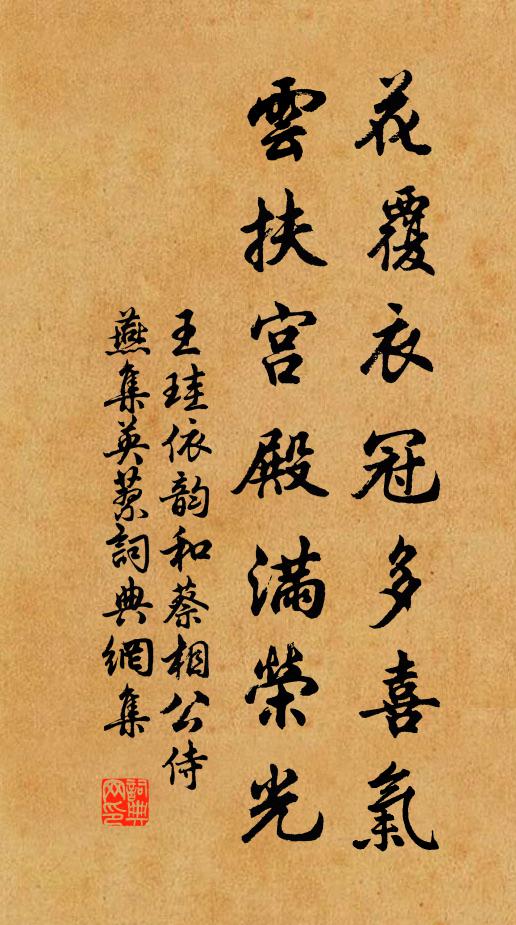 花覆衣冠多喜氣
雲扶宮殿滿榮光
王珪依韵和蔡相公侍
燕集英詞典網集
詞典
网印